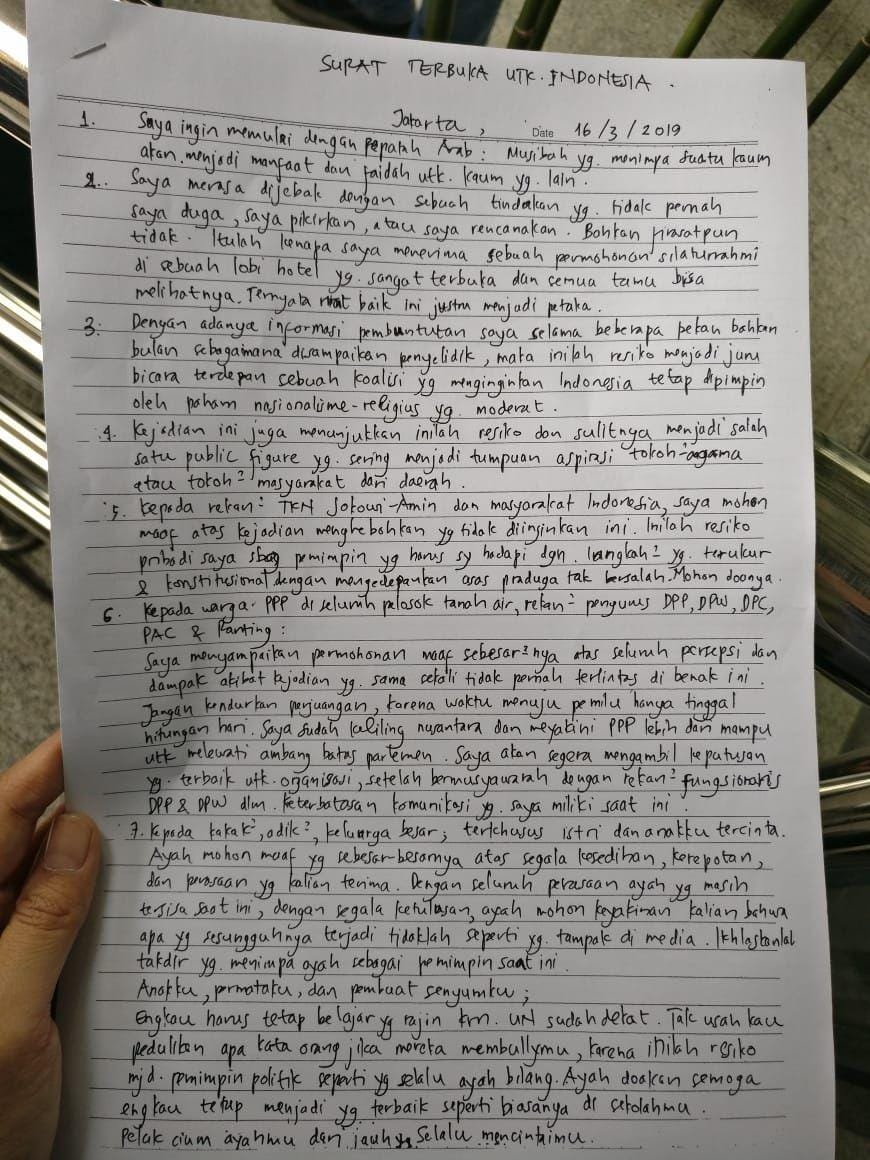 SURAT TERBUKA UTK. INDONESIA.
Jakarta, Date 16/3/2019
1. Saya ingin memulai dengan pepatah Arab: Musibah yg. menimpa suatu kaum
akan menjadi manfaat dan faidah utk. kaum yg. lain.
2. Saya merasa dijebak dengan sebuah tindakan yg. tidak pernah
saya duga, saya pikirkan, atau saya rencanakan. Bahkan firasatpun
tidak. Itulah kenapa saya menerima sebuah permohonan silaturrahmi
di sebuah lobi hotel yg. sangat terbuka dan semua tamu bisa
melihatnya. Ternyata niat baik ini justru menjadi petaka.
3. Dengan adanya informasi pembuntutan saya selama beberapa pekan bahkan
bulan sebagaimana disampaikan penyelidik, maka inilah resiko menjadi juru
bicara terdepan sebuah koalisi yg menginginkan Indonesia tetap dipimpin
oleh paham nasionalisme-religius yg. moderat.
4. Kejadian ini juga menunjukkan inilah resiko dan sulitnya menjadi salah
satu public figure yg. sering menjadi tumpuan aspirasi tokoh² agama
atau tokoh² masyarakat dari daerah.
5. Kepada rekan² TKN Jokowi-Amin dan masyarakat Indonesia, saya mohon
maaf atas kejadian menghebohkan yg tidak diinginkan ini. Inilah resiko
pribadi saya sbag pemimpin yg harus sy hadapi dgn. langkah² yg. terukur
& konstitusional dengan mengedepankan asas praduga tak bersalah. Mohon doanya.
6. Kepada warga PPP di seluruh pelosok tanah air, rekan² pengurus DPP, DPW, DPC,
PAC & Ranting:
Saya menyampaikan permohonan maaf sebesar²nya atas seluruh persepsi dan
dampak akibat kejadian yg. sama sekali tidak pernah terlintas di benak ini.
Jangan kendurkan perjuangan, karena waktu menuju pemilu hanya tinggal
hitungan hari. Saya sudah keliling nusantara dan meyakini PPP lebih dari mampu
utk melewati ambang batas parlemen. Saya akan segera mengambil keputusan
yg. terbaik utk. organisasi, setelah bermusyawarah dengan rekan² fungsionaris
DPP & DPW dlm. keterbatasan komunikasi yg. saya miliki saat ini.
7. Kepada kakak², adik², keluarga besar; terkhusus istri dan anakku tercinta.
Ayah mohon maaf yg sebesar-besarnya atas segala kesedihan, kerepotan,
dan perasaan yg kalian terima. Dengan seluruh perasaan ayah yg masih
tersisa saat ini, dengan segala ketulusan, ayah mohon keyakinan kalian bahwa
apa yg sesungguhnya terjadi tidaklah seperti yg. tampak di media. Ikhlaskanlah
takdir yg. menimpa ayah sebagai pemimpin saat ini.
Anakku, permataku, dan pembuat senyumku;
Engkau harus tetap belajar yg rajin krn. UN sudah dekat. Tak usah kau
pedulikan apa kata orang jika mereka membullymu, karena inilah resiko
mjd. pemimpin politik seperti yg selalu ayah bilang. Ayah doakan semoga
engkau tetap menjadi yg terbaik seperti biasanya di sekolahmu.
Peluk cium ayahmu dari jauh yg selalu mencintaimu.